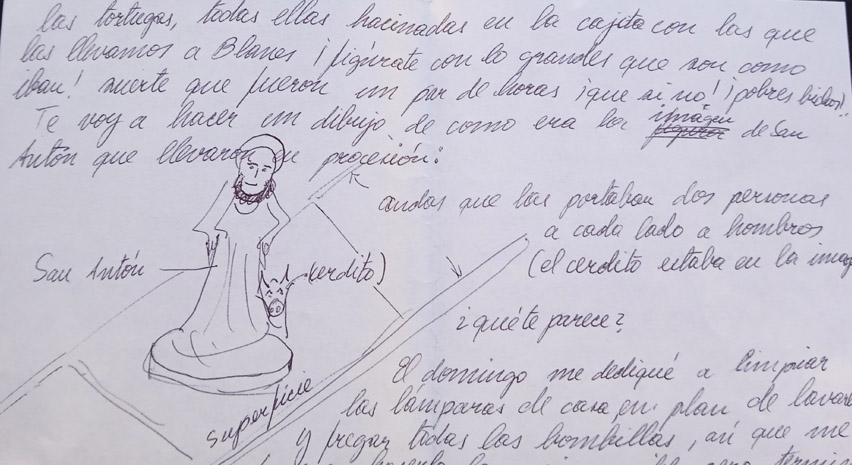 las tortugas, todas ellas hacinadas en la cajita con las que
las llevamos a Blanes ¡figúrate con lo grandes que son como
iban! suerte que fueron un par de horas ¡que si no! ¡pobres bichos!
Te voy a hacer un dibujo de como era la imágen de San
Antón que llevaron en procesión:
andas que las portaban dos personas
a cada lado a hombros
(el cerdito estaba en la imag
San Antón
cerdito)
¿qué te parece?
superficie
El domingo me dediqué a limpiar
las lámparas de casa en plan de lavar
y fregar todas las bombillas, así que me